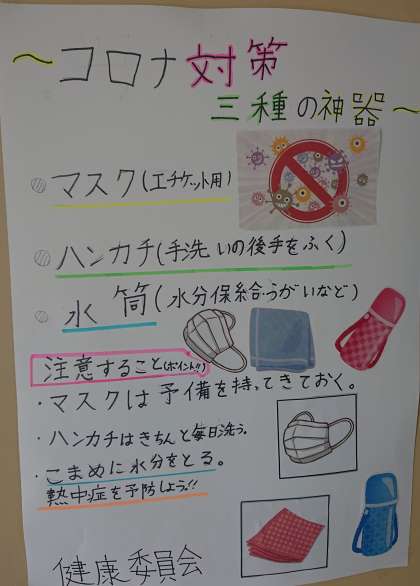 ～コロナ対策
三種の神器～
マスク(エチケット用)
ハンカチ(手洗いの後手をふく)
水筒(水分保給・うがいなど)
注意すること(ポイント!!)
・マスクは予備を持ってきておく。
・ハンカチはきちんと毎日洗う。
・こまめに水分をとる。
熱中症を予防しよう!!
健康委員会